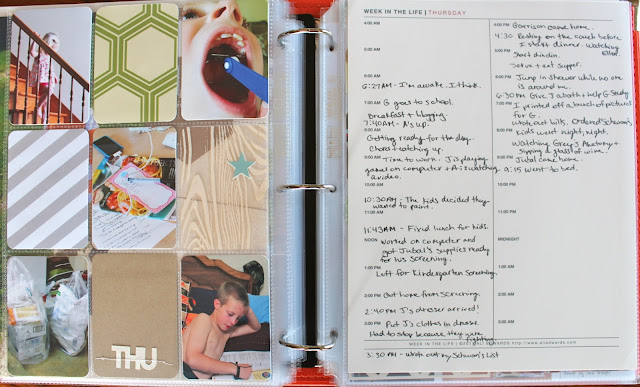 WEEK IN THE LIFE | THURSDAY
4:00 AM
5:00 AM
6:00 AM
6:27AM - I'm awake. I think.
7:00 AM G goes to school.
Breakfast + blogging.
7:40AM - A's up
8:00 AM
Getting ready for the day.
Chores + catching up.
9:00 AM Time to work. J is playing
games on computer + A is watching
a video.
10:00 AM
10:30AM - The kids decided they
wanted to paint.
11:00 AM
11:43AM - Fixed lunch for kids.
NOON Worked on computer and
got Jubal's supplies ready
for his screening.
1:00 PM
Left for Kindergarten Screening.
2:00 PM Got home from screening.
2:40 PM J's dresser arrived!
3:00 PM Put J's clothes in dresser
Had to stop because they were
fighting.
3:30 PM - Wrote out my Schwan's List
4:00 PM Garrison came home.
4:30 Resting on the couch before
I start dinner. Watching
Ellen.
5:00 PM Start dinner.
Serve + eat supper.
6:00 PM Jump in shower while no one
is around me.
6:30 PM Give J a bath + help G study
7:00 PM I printed off a bunch of pictures
for G.
8:00 PM Wrote out bills. Ordered Schwan's
Kids went night, night.
Watching Grey's Anatomy +
9:00 PM sipping a glass of wine.
Jubal came home.
9:15 went to bed.
10:00 PM
11:00 PM
MIDNIGHT
1:00 AM
2:00 AM
3:00 AM
WEEK IN THE LIFE | http://www.aliedwards.com
THU